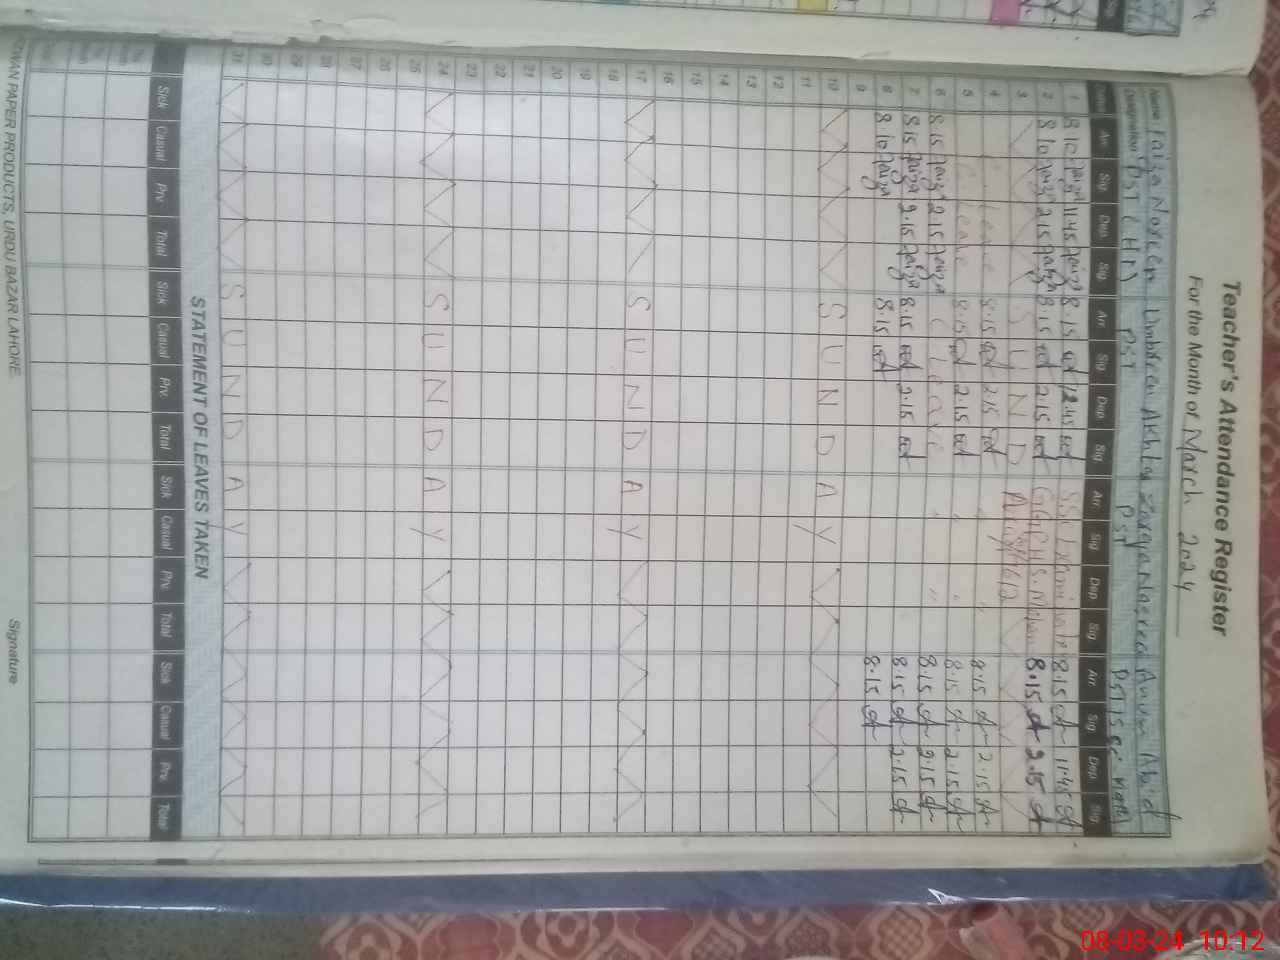 Teacher's Attendance Register
For the Month of March 2024
Name Faiza Noreen Umbreen Akhtar Zarqa Nasreen Anum Abid
Designation PST (HT) PST PST PST
Date Arr. Sig. Dep. Sig. Arr. Sig. Dep. Sig. Arr. Sig. Dep. Sig. Arr. Sig. Dep. Sig.
1 8.10 Faiza 11.45 Faiza 8.15 12.45 8.15 11.45
2 8.10 Faiza 2.15 Faiza 8.15 2.15 8.15 2.15
3 S U N D A Y
4 C. Leave 8.15 2.15 " 8.15 2.15
5 C. Leave 8.15 2.15 " 8.15 2.15
6 8.15 Faiza 2.15 Faiza C Leave " 8.15 2.15
7 8.15 Faiza 2.15 Faiza 8.15 2.15 8.15 2.15
8 8.10 Faiza 8.15 8.15
9
10 S U N D A Y
11
12
13
14
15
16
17 S U N D A Y
18
19
20
21
22
23
24 S U N D A Y
25
26
27
28
29
30
31 S U N D A Y
STATEMENT OF LEAVES TAKEN
Sick Casual Prv. Total Sick Casual Prv. Total Sick Casual Prv. Total Sick Casual Prv. Total
Signature
PAPER PRODUCTS, URDU BAZAR LAHORE.
08-03-24 10:12